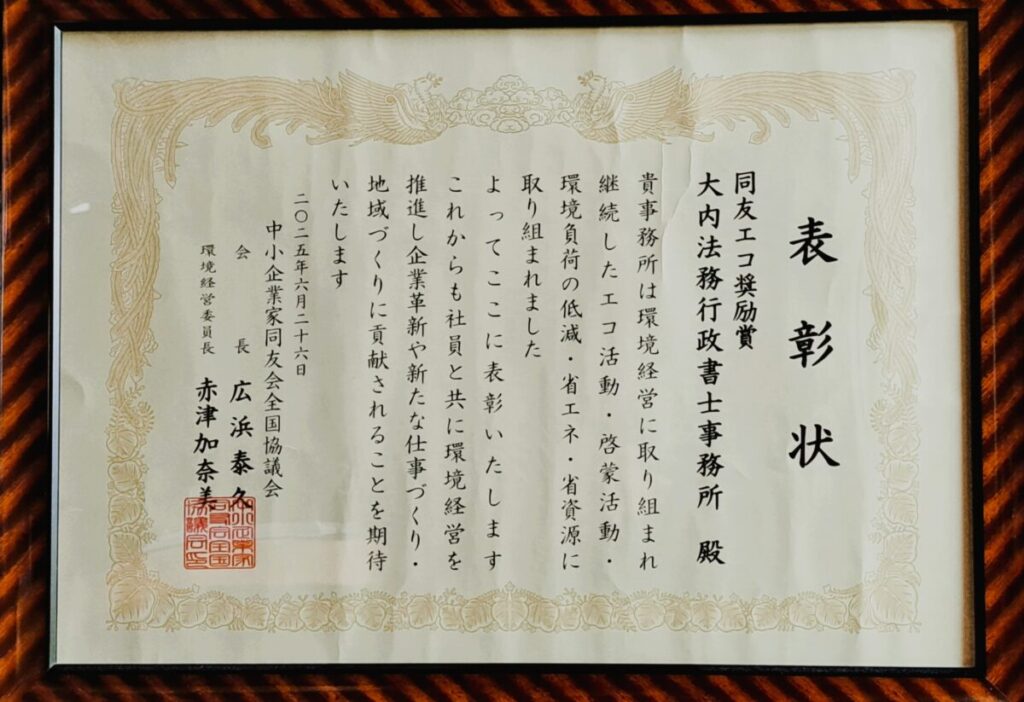 表彰状
同友エコ奨励賞
大内法務行政書士事務所 殿
貴事務所は環境経営に取り組まれ
継続したエコ活動・啓蒙活動・
環境負荷の低減・省エネ・省資源に
取り組まれました
よってここに表彰いたします
これからも社員と共に環境経営を
推進し企業革新や新たな仕事づくり・
地域づくりに貢献されることを期待
いたします
二〇二五年六月二十六日
中小企業家同友会全国協議会
会長 広浜泰久
環境経営委員長 赤津加奈美